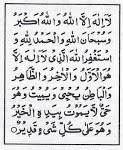 لَا إِلٰهَ إِلَّا اللهُ وَاللهُ أَكْبَرُ
وَسُبْحَانَ اللهِ وَالْحَمْدُ لِلّٰهِ وَ
أَسْتَغْفِرُ اللهَ الَّذِي لَا إِلٰهَ إِلَّا
هُوَ الْأَوَّلُ وَالْآخِرُ وَالظَّاهِرُ
وَالْبَاطِنُ يُحْيِي وَيُمِيتُ وَهُوَ
حَيٌّ لَا يَمُوتُ بِيَدِهِ الْخَيْرُ
وَهُوَ عَلَى كُلِّ شَيْءٍ قَدِيرٌ